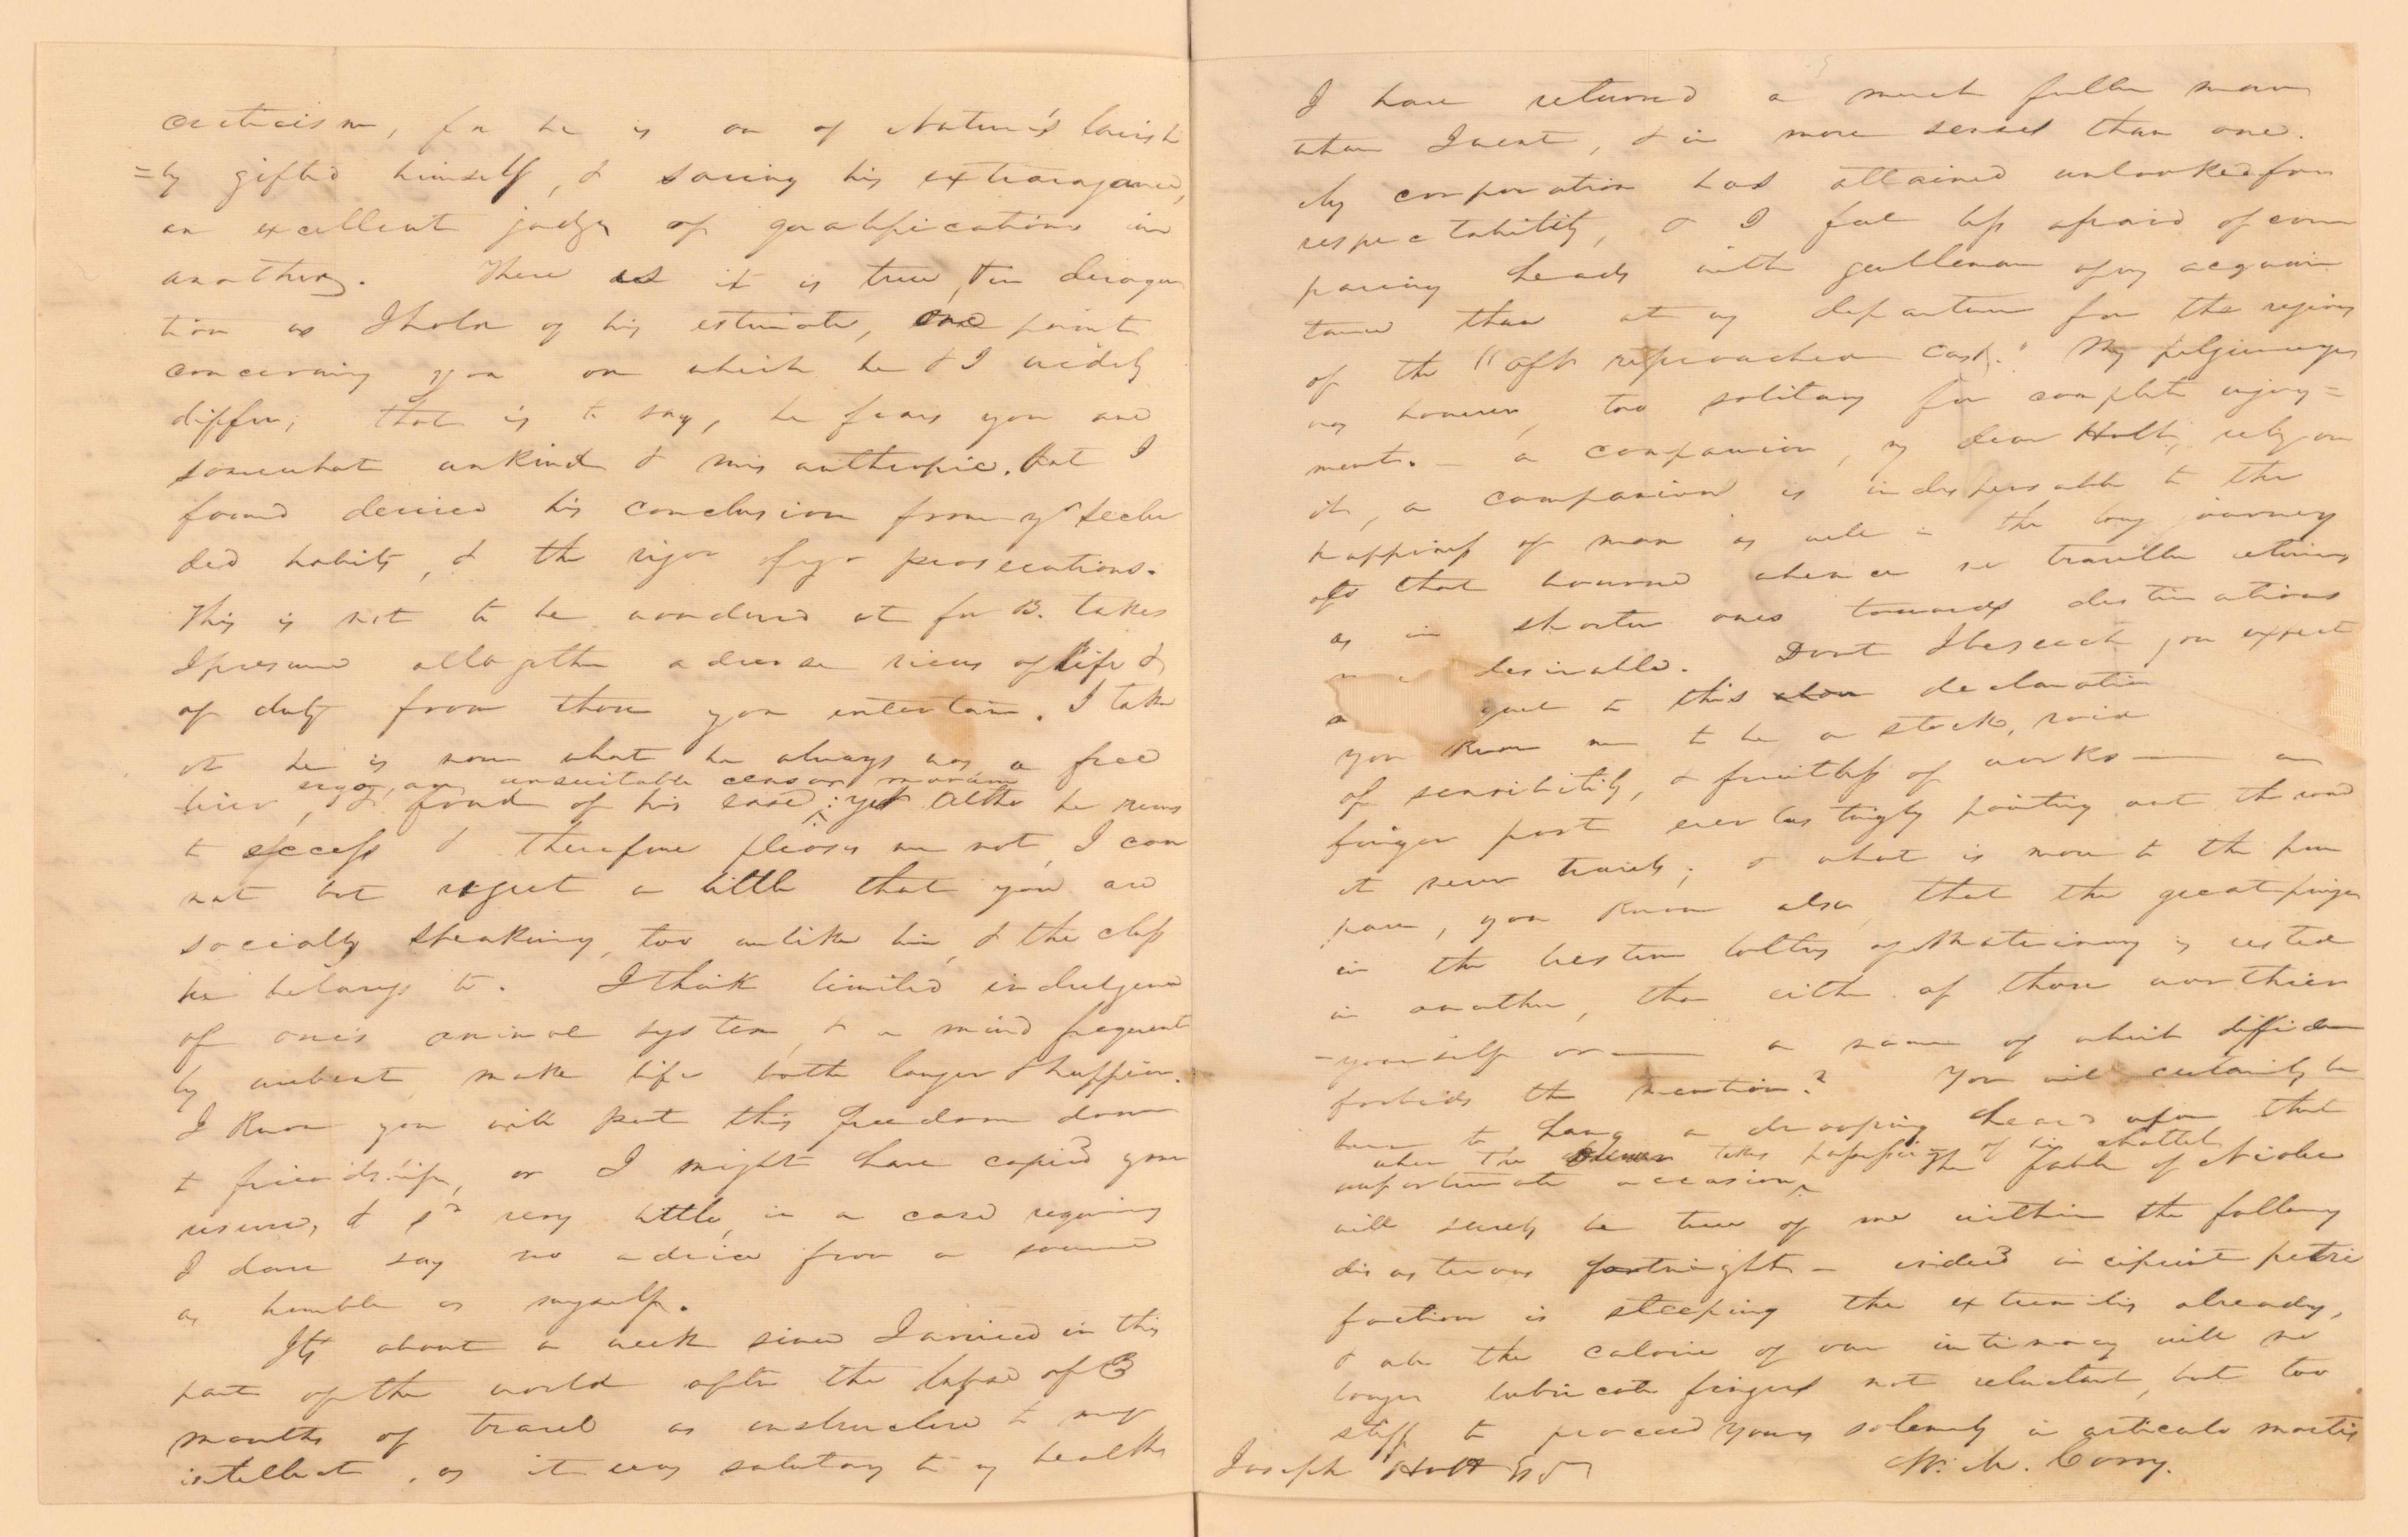 criticism, for he is one of Nature's lavish
=ly gifted himself, & saving his extravagance,
an excellent judge of qualifications in
another. There is it is true, in deroga
tion as I hold of his estimate, one point
concerning you on which he & I widely
differ; that is to say, he fears you are
somewhat unkind & misanthropic. But I
found derived his conclusion from yr seclu
ded habits, & the rigor of yr prosecutions.
This is not to be wondered at for B. takes
I presume altogether adverse views of life &
of duty from those you entertain. I take
it he is now what he always was a free
liver, & fond of his ease; yet altho he runs
ergo, an unsuitable censor morum
to excess & therefore pleases me not, I can
not but regret a little that you are
socially speaking, too unlike him, & the class
he belongs to. I think limited indulgence
of one's animal system, & a mind frequent
ly unbent make life both longer & happier.
I know you will put this freedom down
to friendship, or I might have copied your
reserve, & sd very little, in a case requiring
I dare say no advice from a source
as humble as myself.
Its about a week since I arrived in this
part of the world after the lapse of 3
months of travel as instructive to my
intellect, as it was salutary to my health
I have returned a much fuller man
than I went, & in more senses than one.
My corporation has attained unlooked for
respectability, & I feel less afraid of com
paring heads with gentlemen of my acquain
tance than at my departure for the regions
of the "oft reproached East." My pilgrimage
was however, too solitary for complete enjoy=
ment. — a companion, my dear Holt, rely on
it, a companion is indispensable to the
happiness of man as well in the long journey
to that bourne whence no traveller returns
as in shorter ones towards destinations
desirable. Dont I beseech you expect
to this declaration
you know me to be a stock, void
of sensibility, & fruitless of works — a
finger post everlastingly pointing out the road
it never travels; & what is more to the pur
pose, you know also that the great finger
in the western of Matrimony is vested
in another, than either of those worthies
-yourself or —— a name of which diffidence
forbids the mention? You will certainly be
here to hang a drooping head upon that
when the takes possession of his chattel
unfortunate occasion. The fable of Niobe
will surely be true of me within the following
disastrous fortnight — indeed incipient petri
faction is steeping the extremities already,
& the caloric of our intimacy will no
longer lubricate fingers not reluctant, but too
stiff to proceed yours solemnly in articulo mortis
Joseph Holt Esqr W. M. Corry.